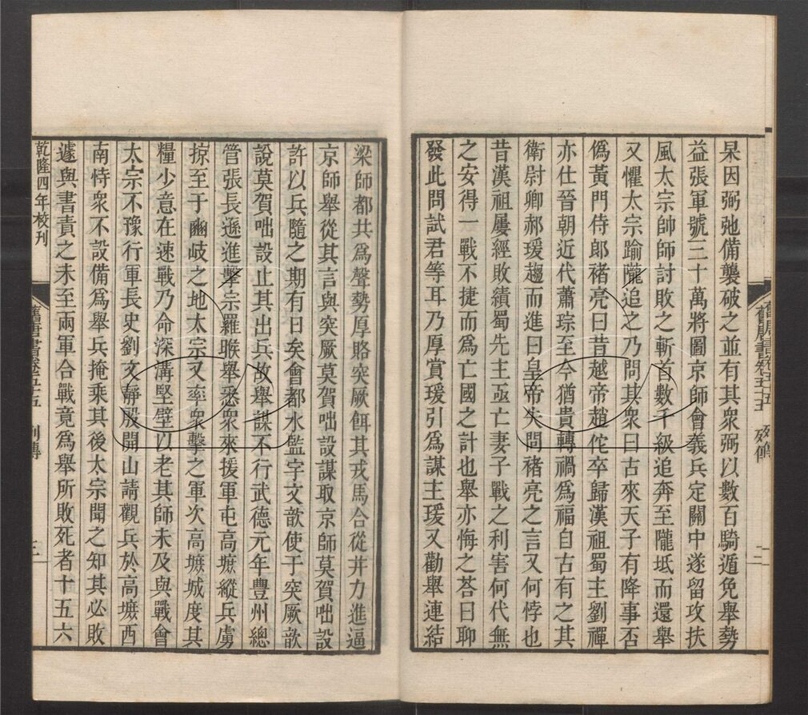 杲因弼弛備襲破之並有其衆弼以數百騎遁免舉勢
益張軍號三十萬將圖京師會義兵定關中遂留攻扶
風太宗帥師討敗之斬首數千級追奔至隴坻而還舉
又懼太宗踰隴追之乃問其衆曰古來天子有降事否
僞黃門侍郎褚亮曰昔越帝趙佗卒歸漢祖蜀主劉禪
亦仕晉朝近代蕭琮至今猶貴轉禍爲福自古有之其
衞尉卿郝瑗趨而進曰皇帝失問褚亮之言又何悖也
昔漢祖屢經敗績蜀先主亟亡妻子戰之利害何代無
之安得一戰不捷而爲亡國之計也舉亦悔之荅曰聊
發此問試君等耳乃厚賞瑗引爲謀主瑗又勸舉連結
舊唐書卷五十五 列傳 二
梁師都共爲聲勢厚賂突厥餌其戎馬合從并力進逼
京師舉從其言與突厥莫賀咄設謀取京師莫賀咄設
許以兵隨之期有日矣會都水監宇文歆使于突厥歆
說莫賀咄設止其出兵故舉謀不行武德元年豐州總
管張長遜進擊宗羅睺舉悉衆來援軍屯高墌縱兵虜
掠至于豳岐之地太宗又率衆擊之軍次高墌城度其
糧少意在速戰乃命深溝堅壁以老其師未及與戰會
太宗不豫行軍長史劉文靜殷開山請觀兵於高墌西
南恃衆不設備爲舉兵掩乘其後太宗聞之知其必敗
遽與書責之未至兩軍合戰竟爲舉所敗死者十五六
乾隆四年校刊
舊唐書卷五十五 列傳 三